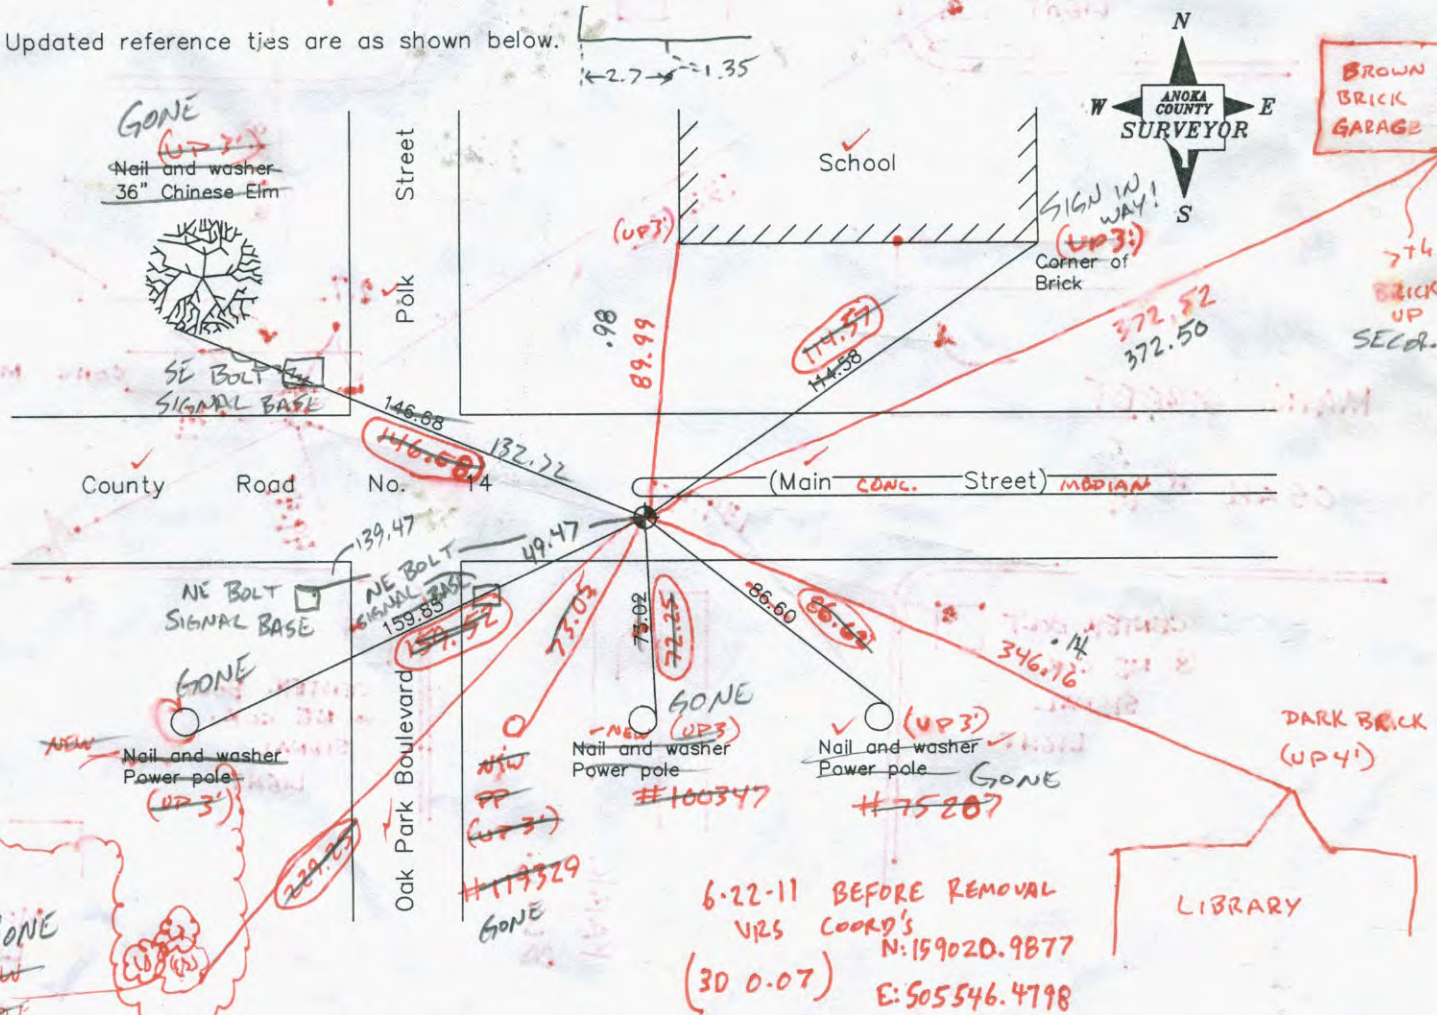 Updated reference ties are as shown below.
2.7
1.35
N
W
E
S
ANOKA
COUNTY
SURVEYOR
BROWN
BRICK
GARAGE
GONE
(UP 3')
Nail and washer
36" Chinese Elm
Polk Street
School
(UP 3')
SIGN IN
WAY!
(UP 3')
Corner of
Brick
BRICK
UP
.98
89.99
114.57
114.58
372.52
372.50
SE BOLT
SIGNAL BASE
146.68
146.68
132.72
County Road No. 14
(Main CONC. Street) MEDIAN
139.47
49.47
NE BOLT
SIGNAL BASE
NE BOLT
SIGNAL BASE
159.85
159.52
73.05
73.02
72.25
86.60
86.62
.14
346.16
GONE
NEW
Nail and washer
Power pole
(UP 3')
229.25
Oak Park Boulevard
NEW
PP
(UP 3')
#119329
GONE
GONE
NEW (UP 3)
Nail and washer
Power pole
#100347
(UP 3')
Nail and washer
Power pole
GONE
#75207
DARK BRICK
(UP 4')
LIBRARY
6-22-11 BEFORE REMOVAL
VRS COORD'S
N:159020.9877
(3D 0.07)
E:505546.4798